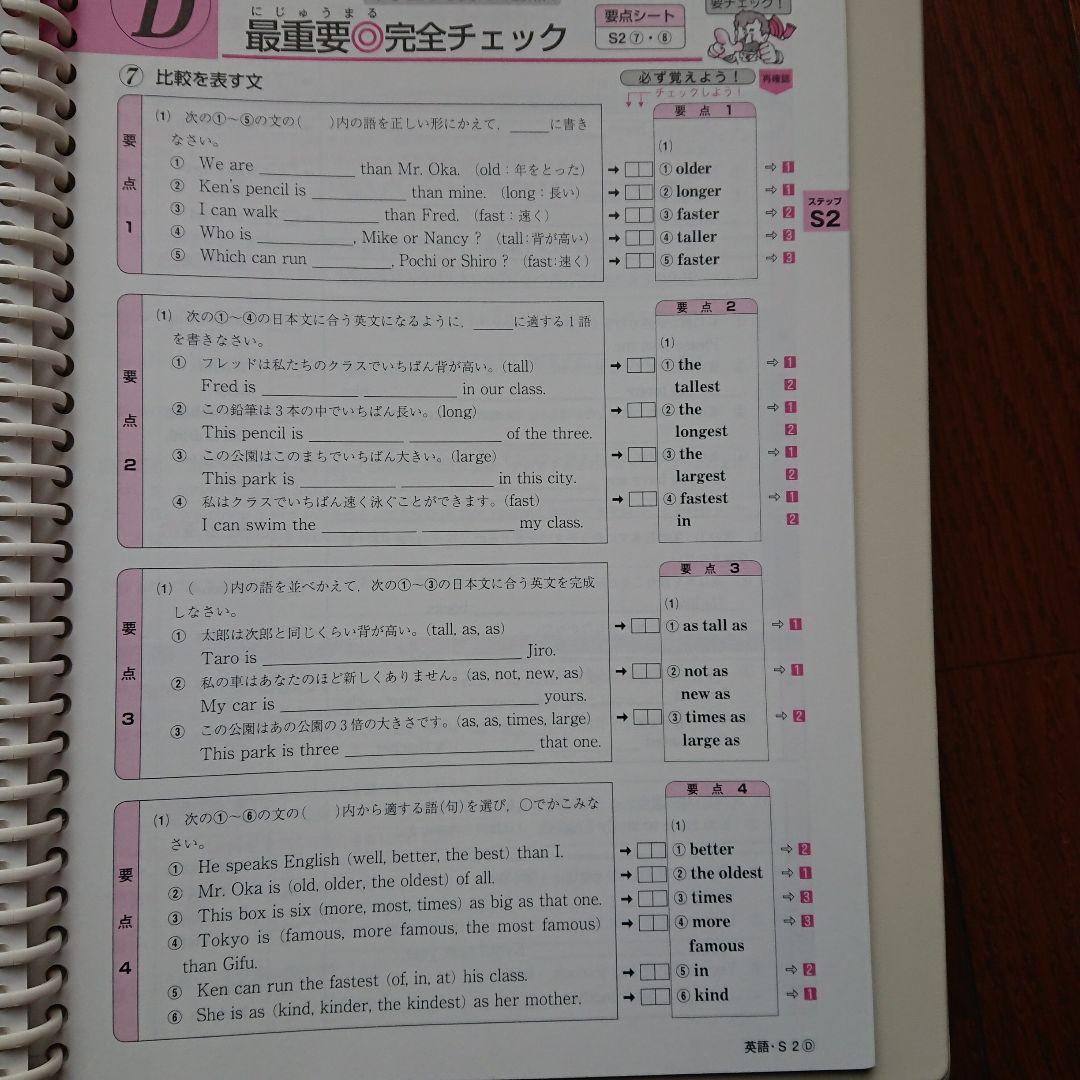 D
にじゅうまる
最重要◎完全チェック
要点シート
S2⑦・⑧
要チェック!
⑦ 比較を表す文
必ず覚えよう!
再確認
チェックしよう!
要点1
(1) 次の①~⑤の文の( )内の語を正しい形にかえて,_____に書き
なさい。
① We are __________ than Mr. Oka. (old:年をとった)
② Ken's pencil is __________ than mine. (long:長い)
③ I can walk __________ than Fred. (fast:速く)
④ Who is __________, Mike or Nancy? (tall:背が高い)
⑤ Which can run __________, Pochi or Shiro? (fast:速く)
要点1
(1)
① older ⇨ 1
② longer ⇨ 1
③ faster ⇨ 2
④ taller ⇨ 3
⑤ faster ⇨ 3
ステップ
S2
要点2
(1) 次の①~④の日本文に合う英文になるように,_____に適する1語
を書きなさい。
① フレッドは私たちのクラスでいちばん背が高い。(tall)
Fred is __________ __________ in our class.
② この鉛筆は3本の中でいちばん長い。(long)
This pencil is __________ __________ of the three.
③ この公園はこのまちでいちばん大きい。(large)
This park is __________ __________ in this city.
④ 私はクラスでいちばん速く泳ぐことができます。(fast)
I can swim the __________ __________ my class.
要点2
(1)
① the ⇨ 1
tallest 2
② the ⇨ 1
longest 2
③ the ⇨ 1
largest 2
④ fastest ⇨ 1
in 2
要点3
(1) ( )内の語を並べかえて,次の①~③の日本文に合う英文を完成
しなさい。
① 太郎は次郎と同じくらい背が高い。(tall, as, as)
Taro is ____________________ Jiro.
② 私の車はあなたのほど新しくありません。(as, not, new, as)
My car is ____________________ yours.
③ この公園はあの公園の3倍の大きさです。(as, as, times, large)
This park is three ____________________ that one.
要点3
(1)
① as tall as ⇨ 1
② not as ⇨ 1
new as
③ times as ⇨ 2
large as
要点4
(1) 次の①~⑥の文の( )内から適する語(句)を選び,○でかこみな
さい。
① He speaks English (well, better, the best) than I.
② Mr. Oka is (old, older, the oldest) of all.
③ This box is six (more, most, times) as big as that one.
④ Tokyo is (famous, more famous, the most famous)
than Gifu.
⑤ Ken can run the fastest (of, in, at) his class.
⑥ She is as (kind, kinder, the kindest) as her mother.
要点4
(1)
① better ⇨ 2
② the oldest ⇨ 1
③ times ⇨ 3
④ more ⇨ 3
famous
⑤ in ⇨ 2
⑥ kind ⇨ 1
英語・S2Ⓓ